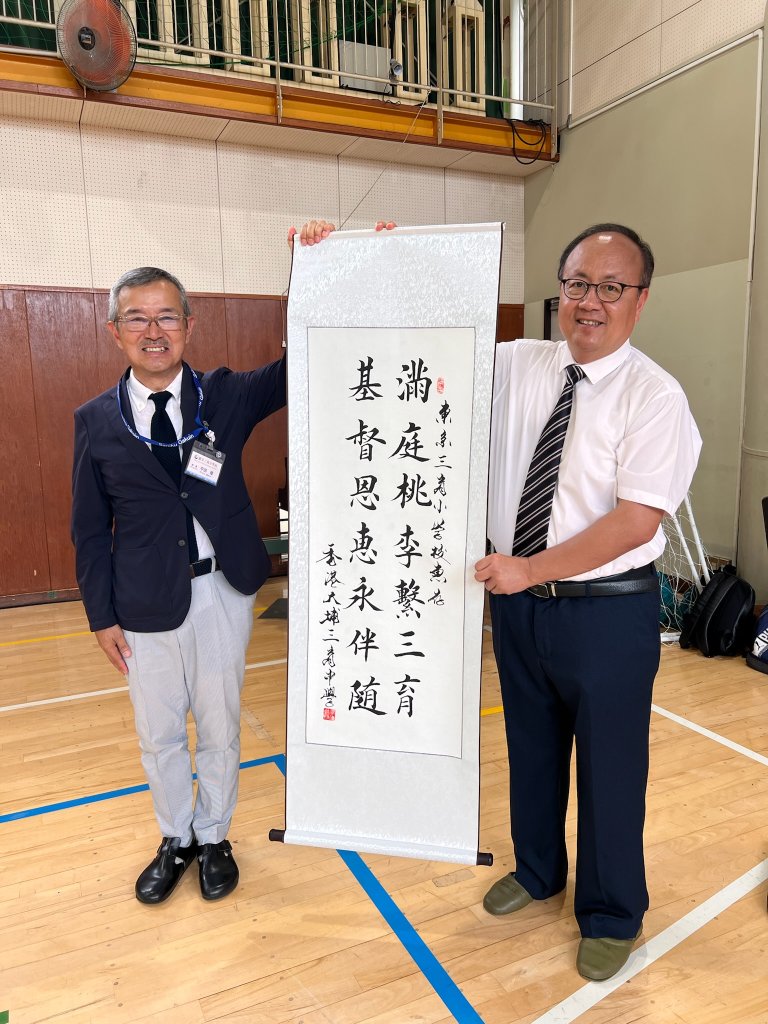 東京三育小学校惠存
滿庭桃李繫三育
基督恩惠永伴随
香港大埔三育中學
Saniku Gakuin